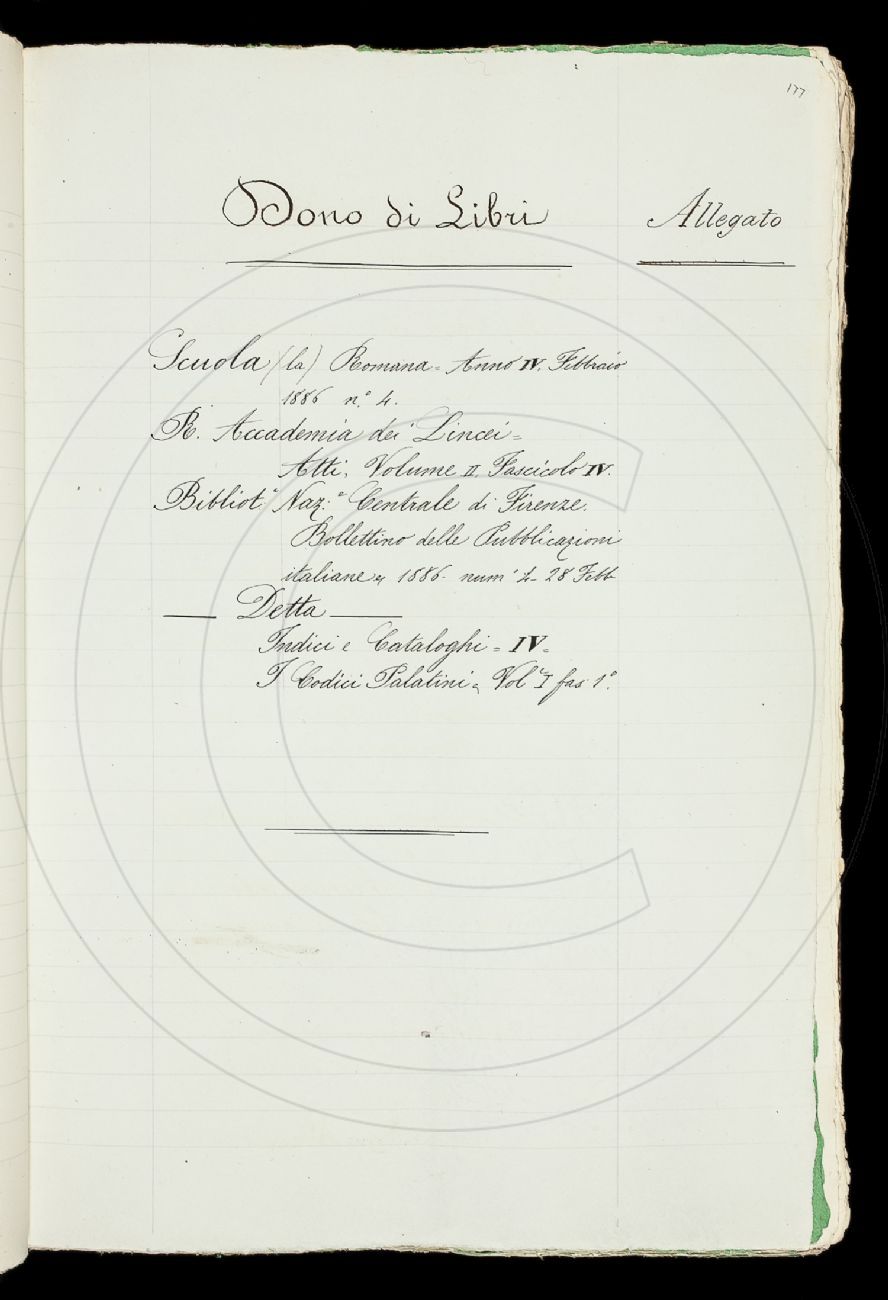 177
Dono di Libri Allegato
Scuola (la) Romana = Anno IV. Febbraio
1886 n.° 4.
R. Accademia dei Lincei =
Atti. Volume II. Fascicolo IV.
Bibliot.ª Naz.e Centrale di Firenze.
Bollettino delle Pubblicazioni
italiane = 1886. num° 4_ 28 Febb
— Detta —
Indici e Cataloghi = IV =
I Codici Palatini = Vol I fas 1°.